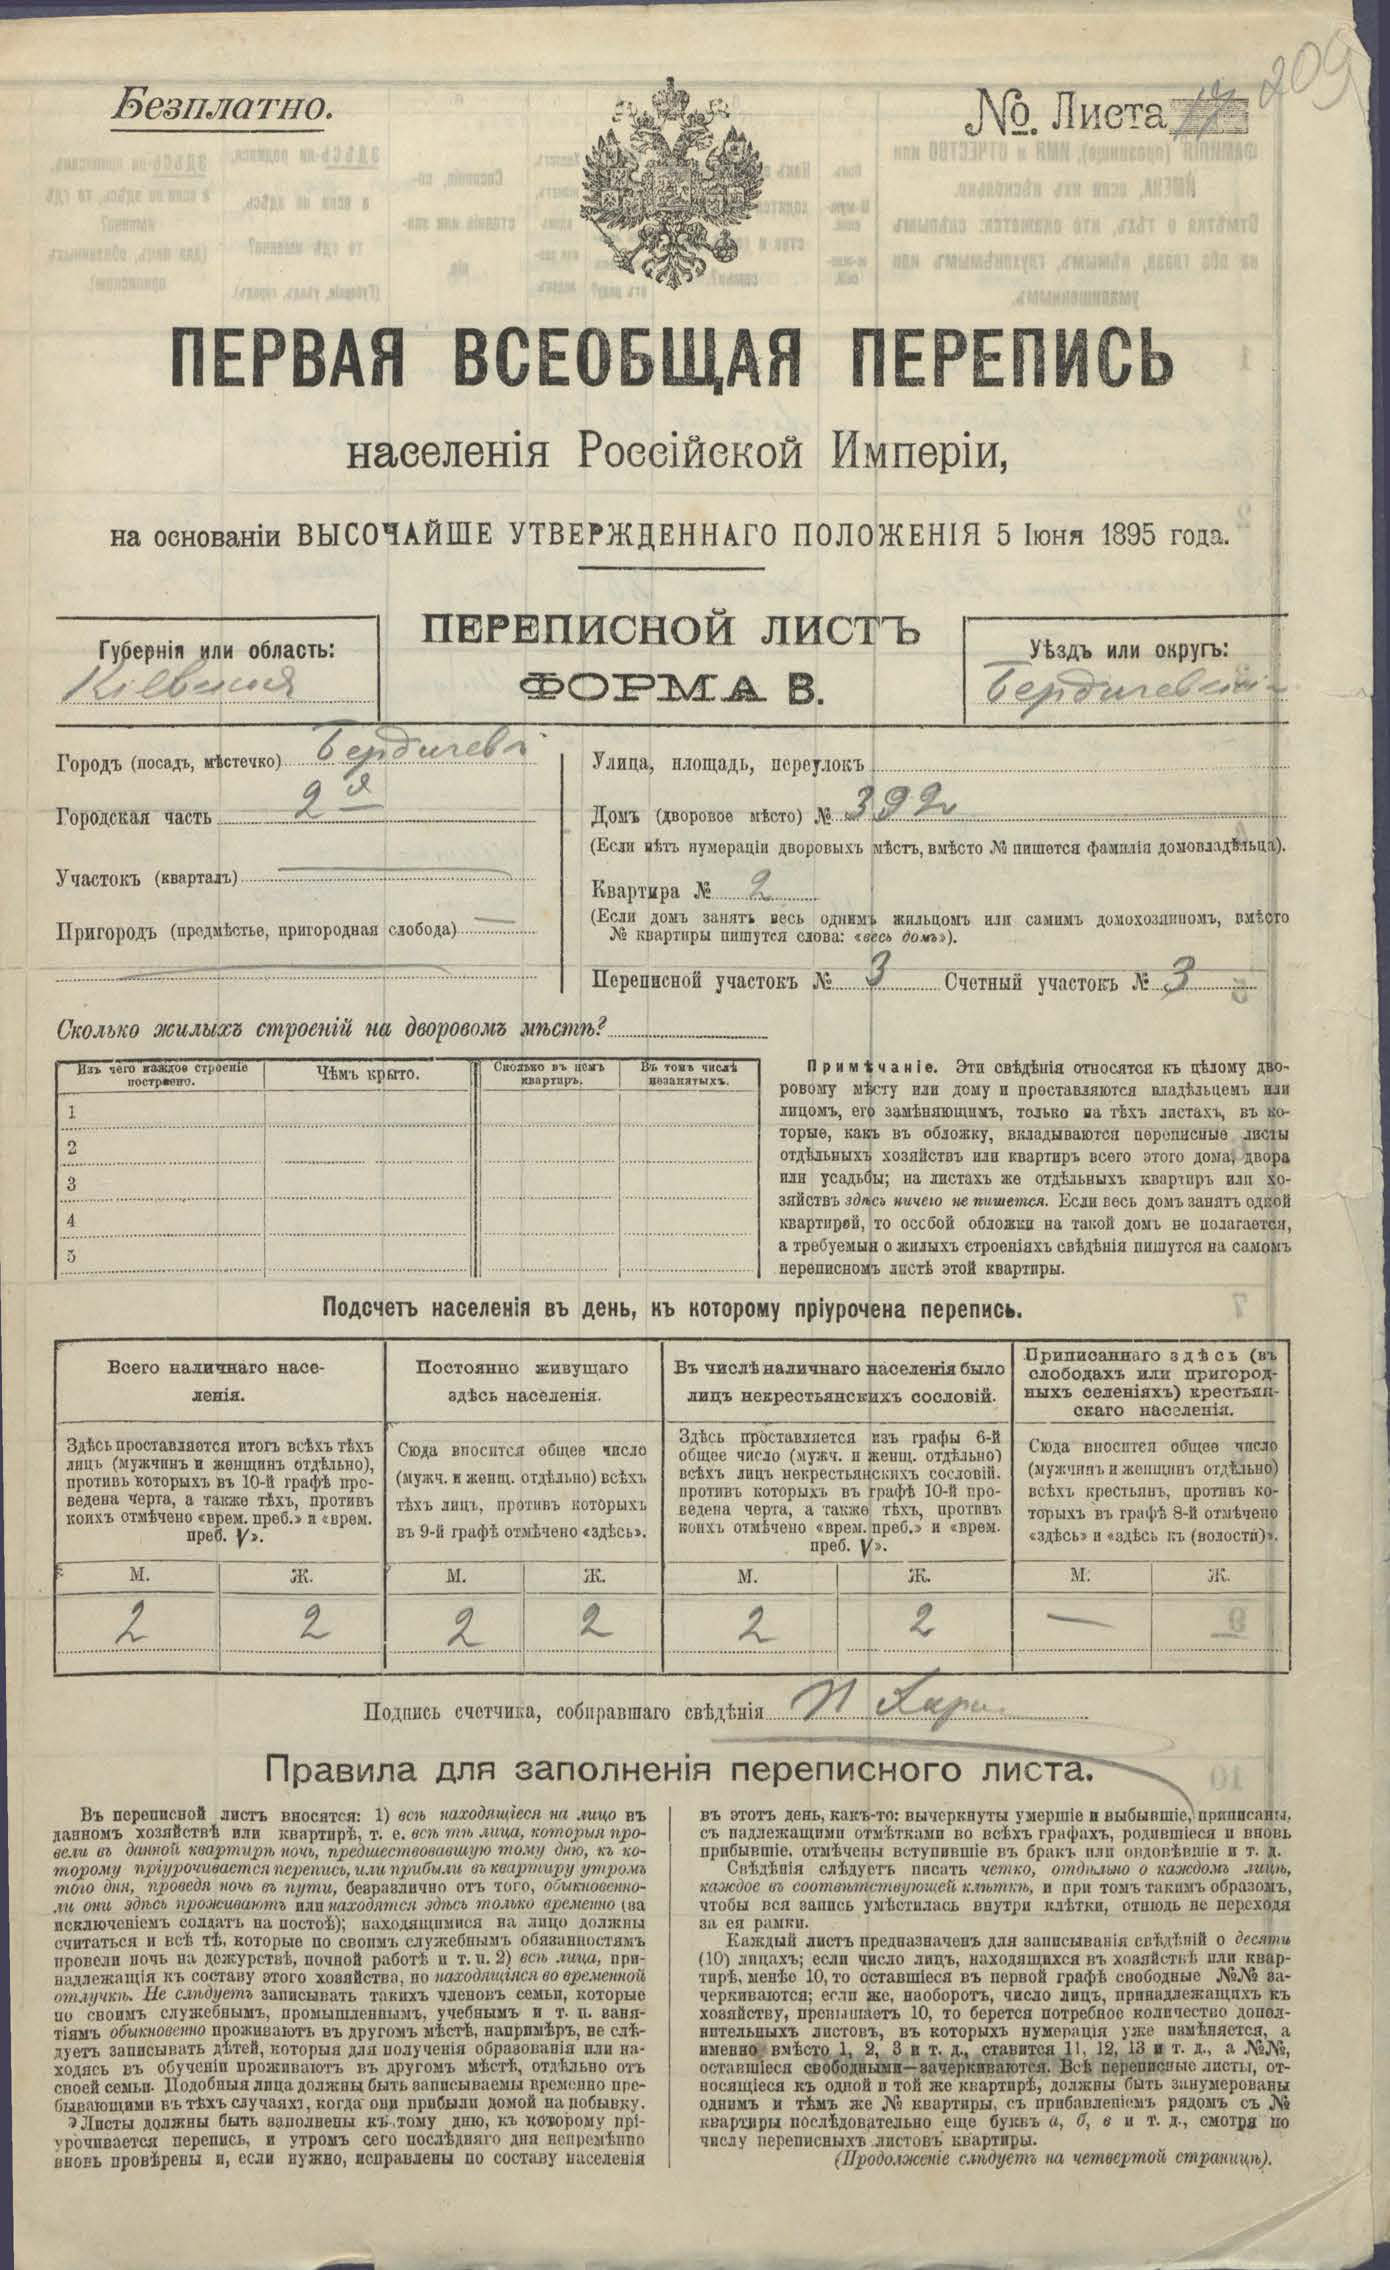 Безплатно.
№ Листа 17
209
ПЕРВАЯ ВСЕОБЩАЯ ПЕРЕПИСЬ
населенія Россійской Имперіи,
на основаніи ВЫСОЧАЙШЕ УТВЕРЖДЕННАГО ПОЛОЖЕНІЯ 5 Іюня 1895 года.
ПЕРЕПИСНОЙ ЛИСТЪ
ФОРМА В.
Губернія или область:
Кіевская
Уѣздъ или округъ:
Бердичевскій
Городъ (посадъ, мѣстечко) Бердичевъ
Городская часть 2я
Участокъ (кварталъ)
Пригородъ (предмѣстье, пригородная слобода)
Улица, площадь, переулокъ
Домъ (дворовое мѣсто) № 392
(Если нѣтъ нумераціи дворовыхъ мѣстъ, вмѣсто № пишется фамилія домовладѣльца).
Квартира № 2
(Если домъ занятъ весь однимъ жильцомъ или самимъ домохозяиномъ, вмѣсто
№ квартиры пишутся слова: «весь домъ»).
Переписной участокъ № 3 Счетный участокъ № 3
Сколько жилыхъ строеній на дворовомъ мѣстѣ?
Изъ чего каждое строеніе
построено.
Чѣмъ крыто.
Сколько въ немъ
квартиръ.
Въ томъ числѣ
незанятыхъ.
1
2
3
4
5
Примѣчаніе. Эти свѣдѣнія относятся къ цѣлому дво-
ровому мѣсту или дому и проставляются владѣльцемъ или
лицомъ, его замѣняющимъ, только на тѣхъ листахъ, въ ко-
торые, какъ въ обложку, вкладываются переписные листы
отдѣльныхъ хозяйствъ или квартиръ всего этого дома, двора
или усадьбы; на листахъ же отдѣльныхъ квартиръ или хо-
зяйствъ здѣсь ничего не пишется. Если весь домъ занятъ одной
квартирой, то особой обложки на такой домъ не полагается,
а требуемыя о жилыхъ строеніяхъ свѣдѣнія пишутся на самомъ
переписномъ листѣ этой квартиры.
Подсчетъ населенія въ день, къ которому пріурочена перепись.
Всего наличнаго насе-
ленія.
Постоянно живущаго
здѣсь населенія.
Въ числѣ наличнаго населенія было
лицъ некрестьянскихъ сословій.
Приписаннаго здѣсь (въ
слободахъ или пригород-
ныхъ селеніяхъ) крестьян-
скаго населенія.
Здѣсь проставляется итогъ всѣхъ тѣхъ
лицъ (мужчинъ и женщинъ отдѣльно),
противъ которыхъ въ 10-й графѣ про-
ведена черта, а также тѣхъ, противъ
коихъ отмѣчено «врем. преб.» и «врем.
преб. V».
Сюда вносится общее число
(мужч. и женщ. отдѣльно) всѣхъ
тѣхъ лицъ, противъ которыхъ
въ 9-й графѣ отмѣчено «здѣсь».
Здѣсь проставляется изъ графы 6-й
общее число (мужч. и женщ. отдѣльно)
всѣхъ лицъ некрестьянскихъ сословій.
противъ которыхъ въ графѣ 10-й про-
ведена черта, а также тѣхъ, противъ
коихъ отмѣчено «врем. преб.» и «врем.
преб. V».
Сюда вносится общее число
(мужчинъ и женщинъ отдѣльно)
всѣхъ крестьянъ, противъ ко-
торыхъ въ графѣ 8-й отмѣчено
«здѣсь» и «здѣсь къ (волости)».
М. Ж. М. Ж. М. Ж. М. Ж.
2 2 2 2 2 2 —
Подпись счетчика, собиравшаго свѣдѣнія
Правила для заполненія переписного листа.
Въ переписной листъ вносятся: 1) всѣ находящіеся на лицо въ
данномъ хозяйствѣ или квартирѣ, т. е. всѣ тѣ лица, которыя про-
вели въ данной квартирѣ ночь, предшествовавшую тому дню, къ ко-
торому пріурочивается перепись, или прибыли въ квартиру утромъ
того дня, проведя ночь въ пути, безразлично отъ того, обыкновенно-
ли они здѣсь проживаютъ или находятся здѣсь только временно (за
исключеніемъ солдатъ на постоѣ); находящимися на лицо должны
считаться и всѣ тѣ, которые по своимъ служебнымъ обязанностямъ
провели ночь на дежурствѣ, ночной работѣ и т. п. 2) всѣ лица, при-
надлежащія къ составу этого хозяйства, но находящіяся во временной
отлучкѣ. Не слѣдуетъ записывать такихъ членовъ семьи, которые
по своимъ служебнымъ, промышленнымъ, учебнымъ и т. п. заня-
тіямъ обыкновенно проживаютъ въ другомъ мѣстѣ, напримѣръ, не слѣ-
дуетъ записывать дѣтей, которыя для полученія образованія или на-
ходясь въ обученіи проживаютъ въ другомъ мѣстѣ, отдѣльно отъ
своей семьи. Подобныя лица должны быть записываемы временно пре-
бывающими въ тѣхъ случаяхъ, когда они прибыли домой на побывку.
Листы должны быть заполнены къ тому дню, къ которому прі-
урочивается перепись, и утромъ сего послѣдняго дня непремѣнно
вновь провѣрены и, если нужно, исправлены по составу населенія
въ этотъ день, какъ-то: вычеркнуты умершіе и выбывшіе, приписаны,
съ надлежащими отмѣтками во всѣхъ графахъ, родившіеся и вновь
прибывшіе, отмѣчены вступившіе въ бракъ или овдовѣвшіе и т. д.
Свѣдѣнія слѣдуетъ писать четко, отдѣльно о каждомъ лицѣ,
каждое въ соотвѣтствующей клѣткѣ, и при томъ такимъ образомъ,
чтобы вся запись умѣстилась внутри клѣтки, отнюдь не переходя
за ея рамки.
Каждый листъ предназначенъ для записыванія свѣдѣній о десяти
(10) лицахъ; если число лицъ, находящихся въ хозяйствѣ или квар-
тирѣ, менѣе 10, то оставшіеся въ первой графѣ свободные №№ за-
черкиваются; если же, наоборотъ, число лицъ, принадлежащихъ къ
хозяйству, превышаетъ 10, то берется потребное количество допол-
нительныхъ листовъ, въ которыхъ нумерація уже измѣняется, а
именно вмѣсто 1, 2, 3 и т. д., ставится 11, 12, 13 и т. д., а №№,
оставшіеся свободными—зачеркиваются. Всѣ переписные листы, от-
носящіеся къ одной и той же квартирѣ, должны быть занумерованы
однимъ и тѣмъ же № квартиры, съ прибавленіемъ рядомъ съ №
квартиры послѣдовательно еще буквъ а, б, в и т. д., смотря по
числу переписныхъ листовъ квартиры.
(Продолженіе слѣдуетъ на четвертой страницѣ).